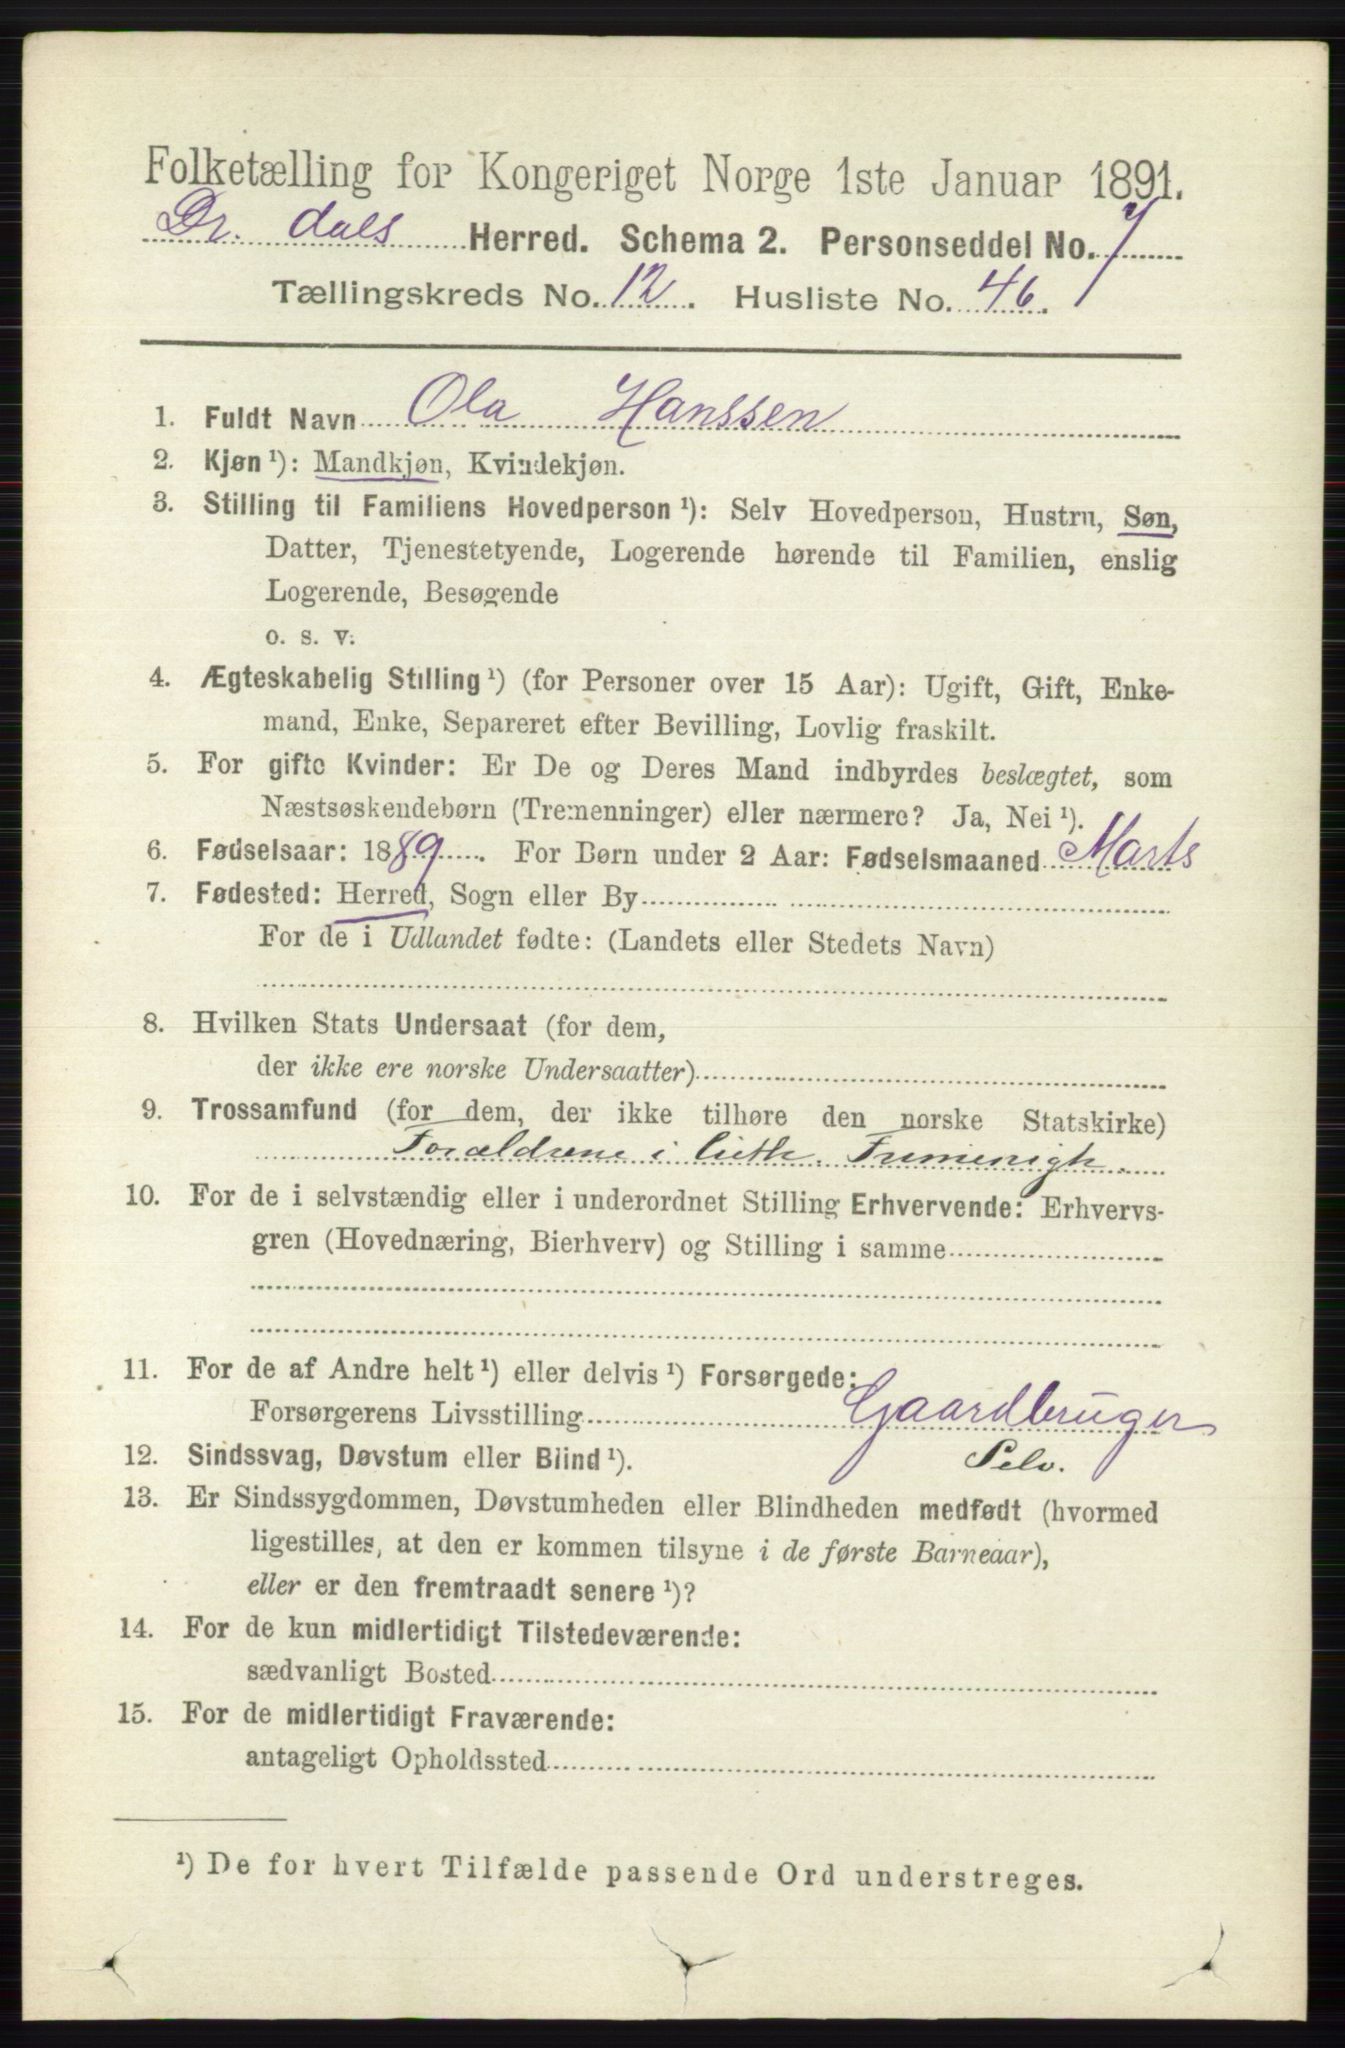 Folketælling for Kongeriget Norge 1ste Januar 1891.
Dr. dals Herred. Schema 2. Personseddel No. 7
Tællingskreds No. 12. Husliste No. 46.
1. Fuldt Navn Ola Hanssen
2. Kjøn ¹): Mandkjøn, Kvindekjøn.
3. Stilling til Familiens Hovedperson ¹): Selv Hovedperson, Hustru, Søn,
Datter, Tjenestetyende, Logerende hørende til Familien, enslig
Logerende, Besøgende
o. s. v.
4. Ægteskabelig Stilling ¹) (for Personer over 15 Aar): Ugift, Gift, Enke-
mand, Enke, Separeret efter Bevilling, Lovlig fraskilt.
5. For gifte Kvinder: Er De og Deres Mand indbyrdes beslægtet, som
Næstsøskendebørn (Tremenninger) eller nærmere? Ja, Nei ¹).
6. Fødselsaar: 1889. For Børn under 2 Aar: Fødselsmaaned Marts
7. Fødested: Herred, Sogn eller By
For de i Udlandet fødte: (Landets eller Stedets Navn)
8. Hvilken Stats Undersaat (for dem,
der ikke ere norske Undersaatter)
9. Trossamfund (for dem, der ikke tilhøre den norske Statskirke)
Forældrene i luth. Frimenigh.
10. For de i selvstændig eller i underordnet Stilling Erhvervende: Erhvervs-
gren (Hovednæring, Bierhverv) og Stilling i samme
11. For de af Andre helt ¹) eller delvis ¹) Forsørgede:
Forsørgerens Livsstilling Gaardbruger
12. Sindssvag, Døvstum eller Blind ¹). Selv.
13. Er Sindssygdommen, Døvstumheden eller Blindheden medfødt (hvormed
ligestilles, at den er kommen tilsyne i de første Barneaar),
eller er den fremtraadt senere ¹)?
14. For de kun midlertidigt Tilstedeværende:
sædvanligt Bosted
15. For de midlertidigt Fraværende:
antageligt Opholdssted
¹) De for hvert Tilfælde passende Ord understreges.